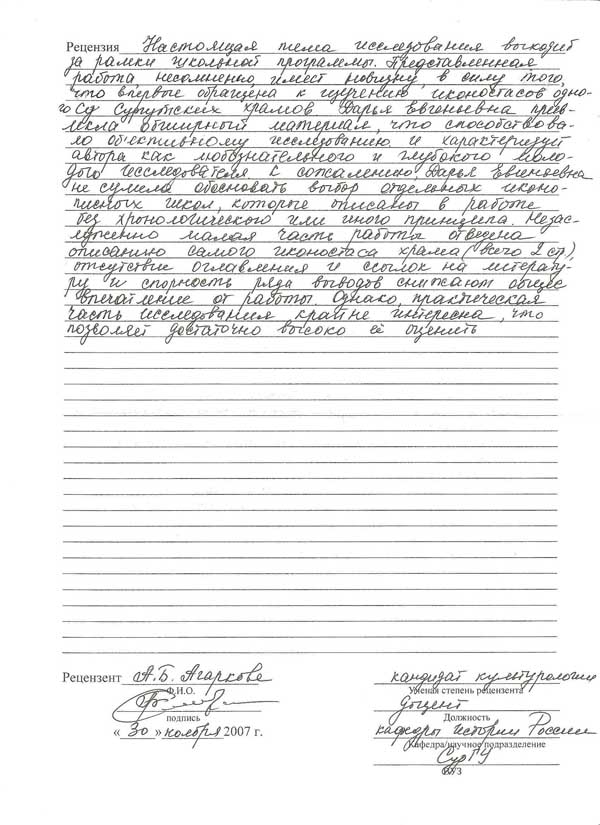 Рецензия Настоящая тема исследования выходит
за рамки школьной программы. Представленная
работа несомненно имеет новизну, в силу того,
что впервые обращена к изучению иконостасов одно-
го Сургутских храмов. Дарья Евгеньевна прив-
лекла обширный материал, что способствова-
ло объективному исследованию и характеризует
автора как любознательного и глубокого моло-
дого исследователя. К сожалению, Дарья Евгеньевна
не сумела обосновать выбор отдельных иконо-
писных школ, которые описаны в работе
без хронологического или иного принципа. Незас-
луженно малая часть работы отведена
описанию самого иконостаса храма (всего 2 ст.),
отсутствие оглавления и ссылок на литерату-
ру и спорность ряда выводов снижают общее
впечатление от работы. Однако, практическая
часть исследования крайне интересна, что
позволяет достаточно высоко её оценить
Рецензент А.Б. Агаркова
Ф.И.О.
подпись
« 30 » ноября 2007 г.
кандидат культурологии
Ученая степень рецензента
доцент
Должность
кафедры истории России
Кафедра/научное подразделение
СурГУ
ВУЗ